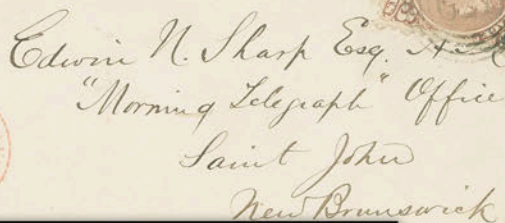 Edwin N. Sharp Esq.
"Morning Telegraph" Office
Saint John
New Brunswick